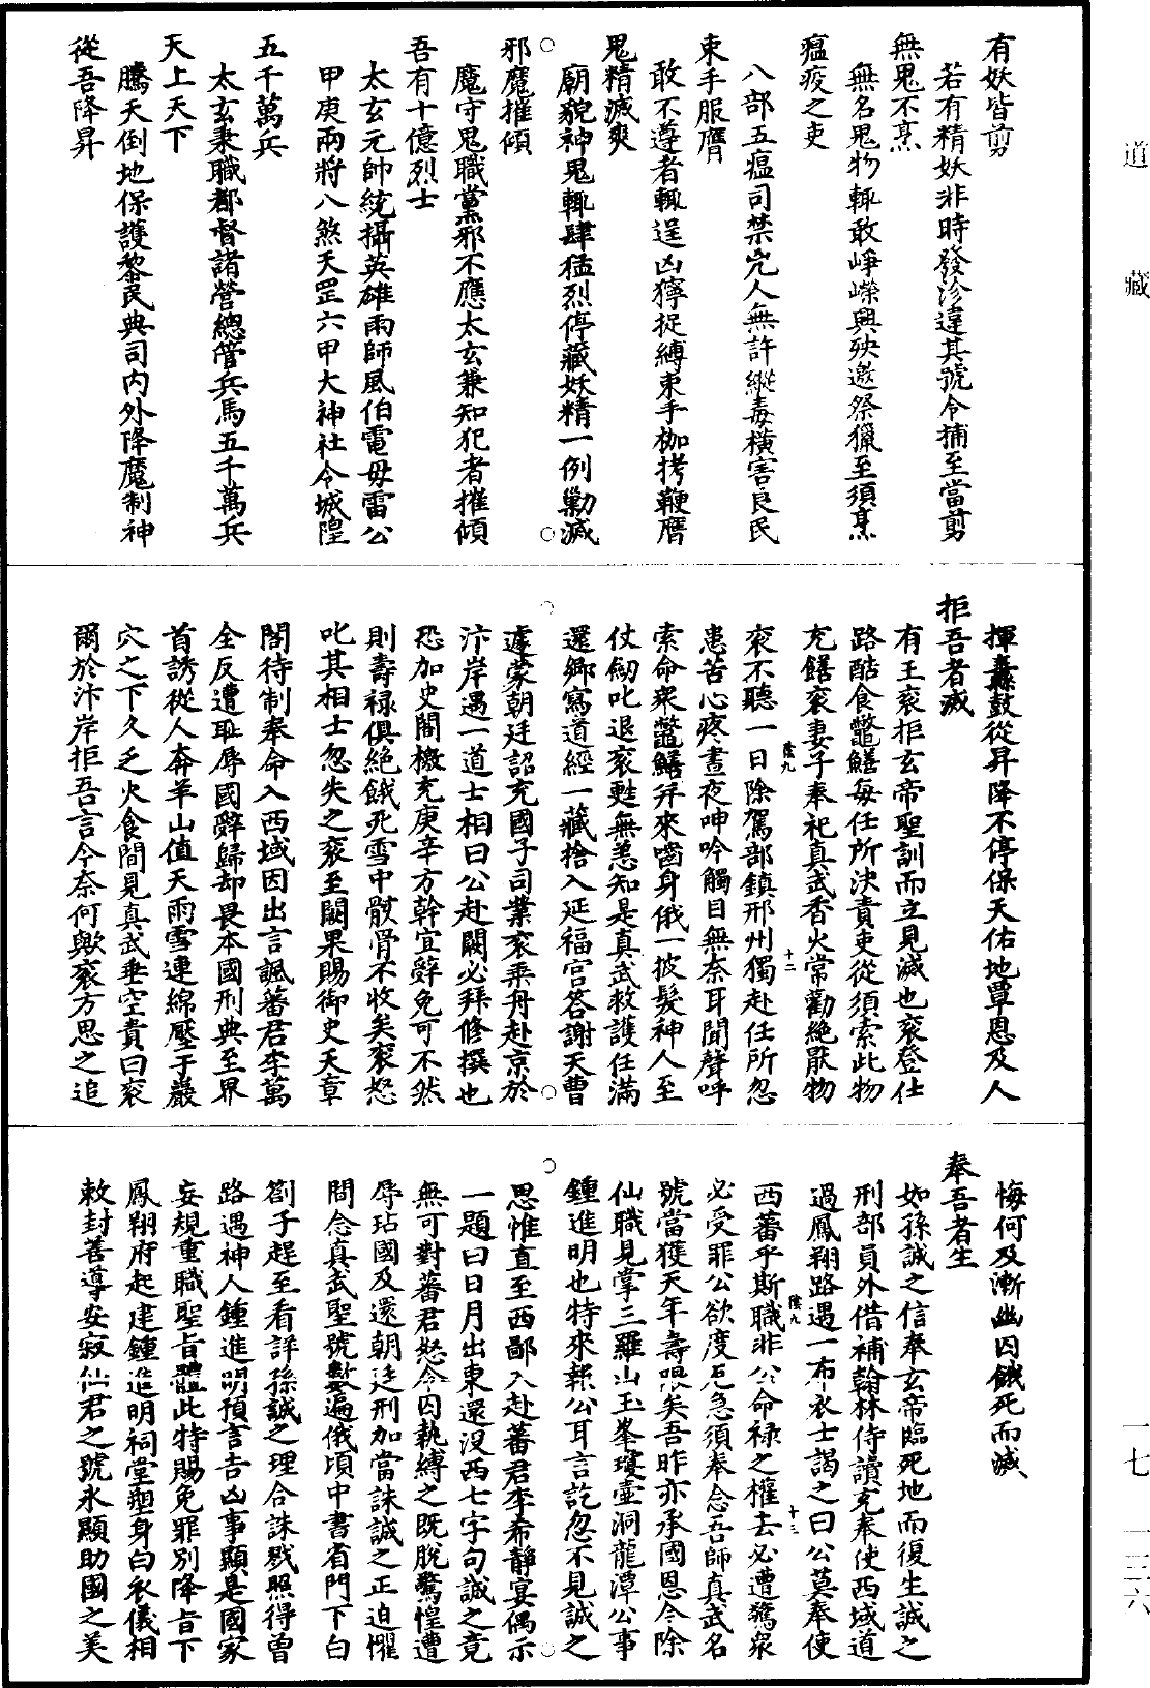 道藏
有妖皆剪
若有精妖非時發沴違其號令捕至當剪
無鬼不烹
無名鬼物輒敢崢嶸興殃邀祭獵至須烹
瘟疫之吏
八部五瘟司禁兇人無許縱毒橫害良民
束手服膺
敢不遵者輒逞凶獰捉縛束手枷拷鞭膺
鬼精滅爽
廟貌神鬼輒肆猛烈停藏妖精一例勦滅
邪魔摧傾
魔守鬼職黨邪不應太玄兼知犯者摧傾
吾有十億烈士
太玄元帥統攝英雄雨師風伯電母雷公
甲庚兩將八煞天罡六甲大神社令城隍
五千萬兵
太玄秉職都督諸營總管兵馬五千萬兵
天上天下
騰天倒地保護黎民典司內外降魔制神
從吾降昇
揮轟鼓從昇降不停保天佑地覃恩及人
拒吾者滅
有王衮拒玄帝聖訓而立見滅也衮登仕
路酷食鼈鱔每任所決責吏從須索此物
充饍衮妻子奉祀真武香火常勸絶厭物
衮不聽一日除駕部鎮邢州獨赴任所忽
患苦心疼晝夜呻吟觸目無奈耳聞聲呼
索命衆鼈鱔并來嚙身俄一披髮神人至
仗劒叱退衮甦無恙知是真武救護任滿
還鄉寫道經一藏捨入延福宫答謝天曹
遽蒙朝廷詔充國子司業衮乘舟赴京於
汴岸遇一道士相曰公赴闕必拜修撰也
恐加史閣檄充庚辛方幹宜辭免可不然
則壽祿俱絶餓死雪中骸骨不收矣衮怒
叱其相士忽失之衮至闕果賜御史天章
閣待制奉命入西域因出言諷蕃君李萬
全反遭恥辱國辭歸却畏本國刑典至界
首誘從人奔羊山值天雨雪連綿壓于巖
穴之下久乏火食間見真武垂空責曰衮
爾於汴岸拒吾言今奈何歟衮方思之追
悔何及漸幽囚餓死而滅
奉吾者生
如孫誠之信奉玄帝臨死地而復生誠之
刑部員外借補翰林侍讀充奉使西域道
過鳳翔路遇一布衣士謁之曰公莫奉使
西蕃乎斯職非公命祿之權去必遭駕衆
必受罪公欲度厄急須奉念吾師真武名
號當獲天年壽限矣吾昨亦承國恩今除
仙職見掌三羅山玉峯瓊壺洞龍潭公事
鍾進明也特來報公耳言訖忽不見誠之
思惟直至西鄙入赴蕃君李希靜宴偶示
一題曰日月出東還没西七字句誠之竟
無可對蕃君怒令囚執縛之既脱驚惶遭
辱玷國及還朝廷刑加當誅誠之正迫懼
間念真武聖號數遍俄頃中書省門下白
劄子趕至看詳孫誠之理合誅戮照得曾
路遇神人鍾進明預言吉凶事顯是國家
妄規重職聖旨體此特賜免罪别降旨下
鳳翔府起建鍾進明祠堂塑身白衣儀相
敕封善導安寂仙君之號永顯助國之美
陰九
十二
陰九
十三
一七
一三六